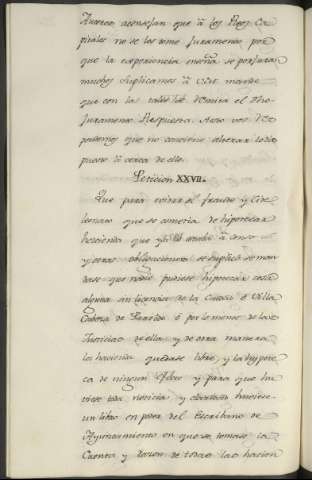 Autores aconsejan que à los Reos Ca-
pitales no se les tome Juramento por
que la experiencia enseña se perjuran
muchos suplicamos à V.M. mande
que con la calidad se omita el dho
Juramento. Respuesta. A esto vos de-
cimos que no conviene alterar lo dis-
puesto à cerca de ello.
Peticion XXVII.
Que para evitar el fraude y Este-
lionato que se cometia de hipotecar
hacienda que ya estaba à censo
y otras obligaciones se suplicó se man-
dase que nadie pudiese hipotecar cosa
alguna sin licencia de la Ciudad ó Villa
Cabeza de Partido ó por lo menos de las
Justicias de ella y de otra manera
la hacienda quedase libre, y la hypote-
ca de ningun Valor y para que hu-
viese toda noticia, y claridad huviese
un libro en poder del Escribano de
Ayuntamiento en que se tomase la
Cuenta y razon de todas las hacien